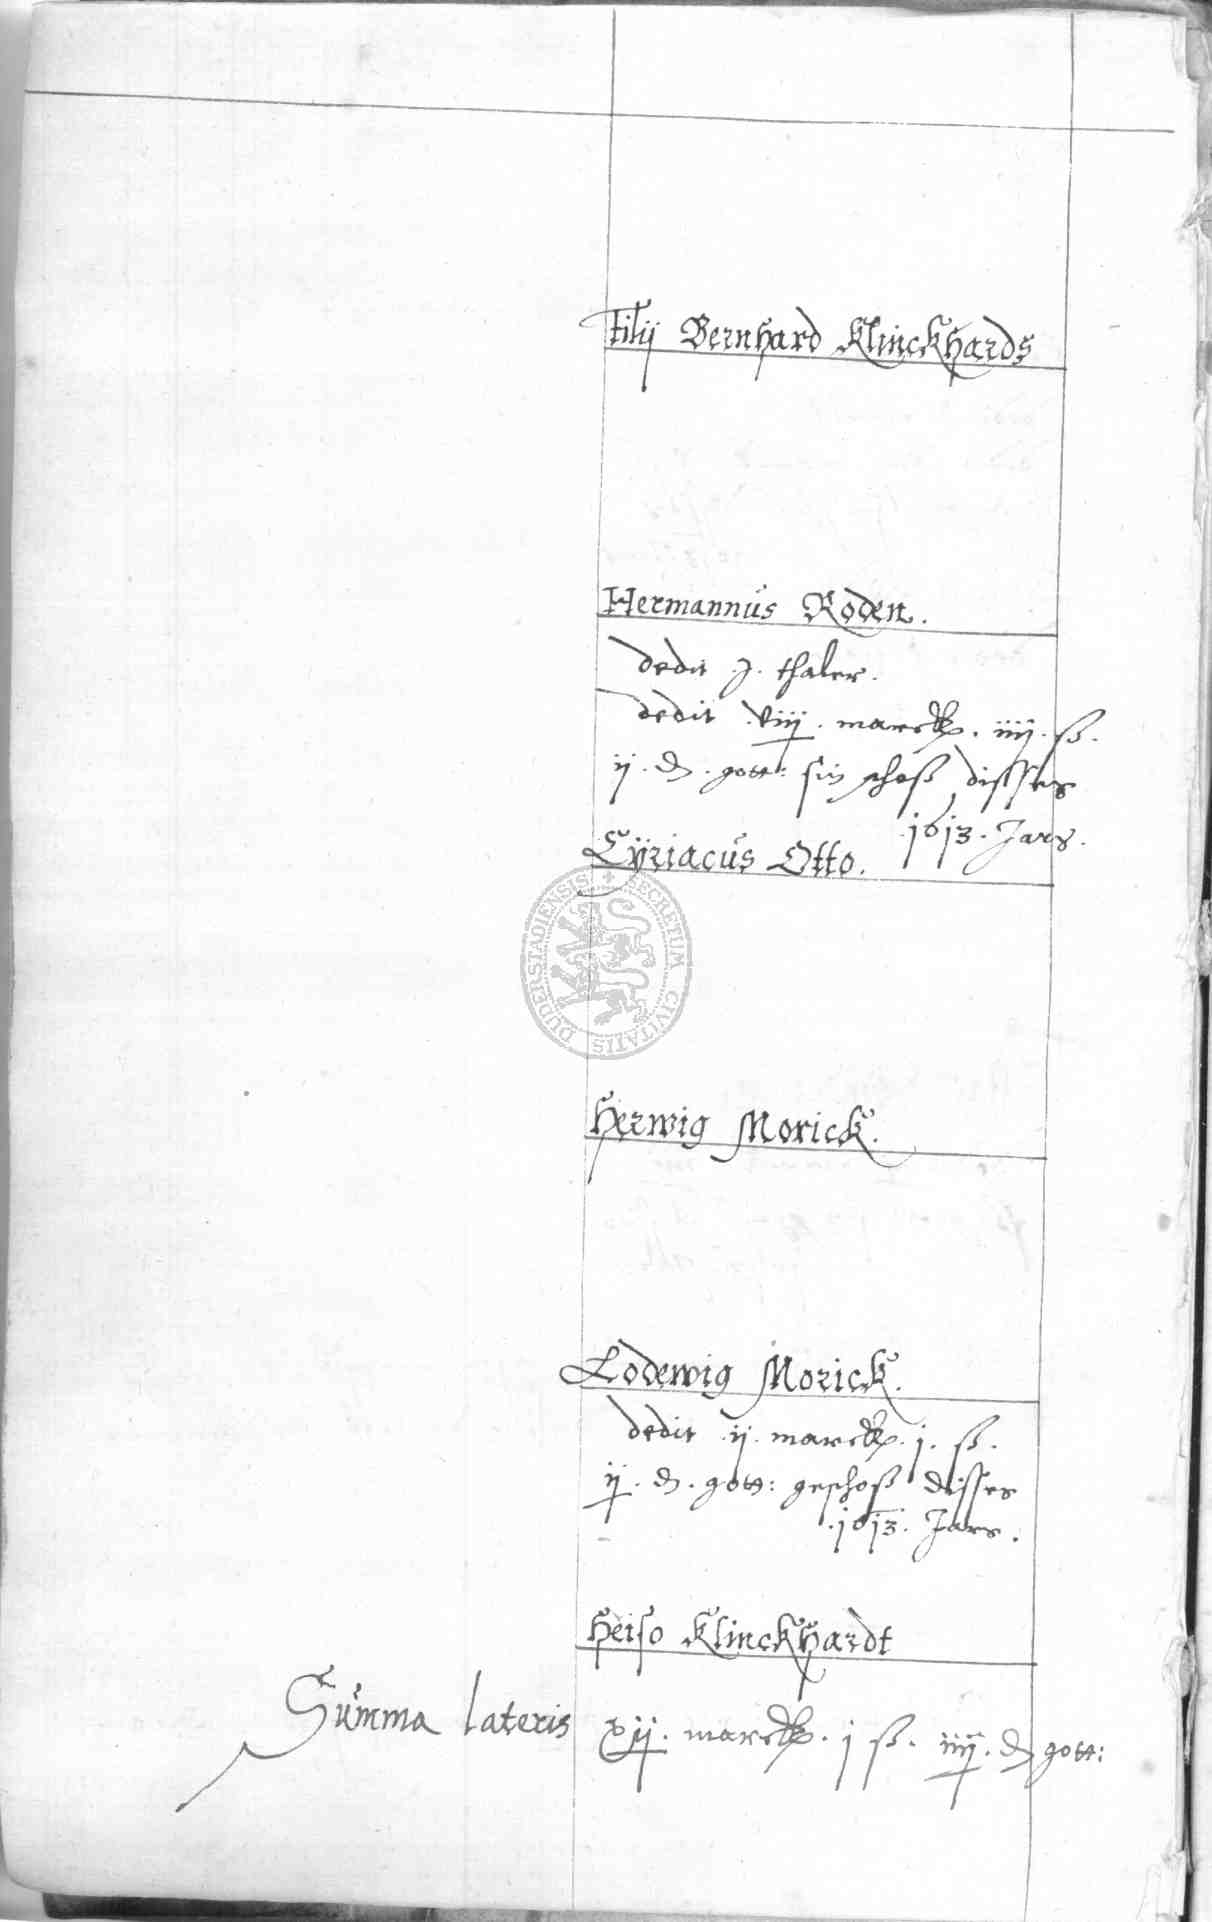 Filij Bernhard Klinckhards
Hermannus Roden.
dedit .j. thaler.
dedit .viij. marck. iiij. ß.
ij. d. gott: sin schoß disses
.1613. Jars.
Cÿriacus Otto.
DUDERSTADIENSIS SECRETUM CIVITATIS
Herwig Morick.
Lodewig Morick.
dedit .ij. marck. j. ß.
ij. d. gott: geschoß disses
.1613. Jars.
Heiso Klinckhardt
Summa lateris xij. marck. j ß. iiij. d gott: